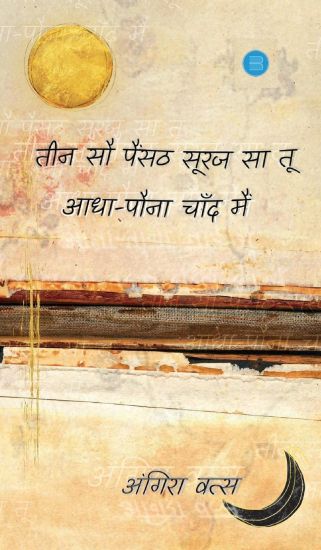 तीन सौ पैंसठ सूरज सा तू
आधा-पौना चाँद मैं
अंगिरा वत्स